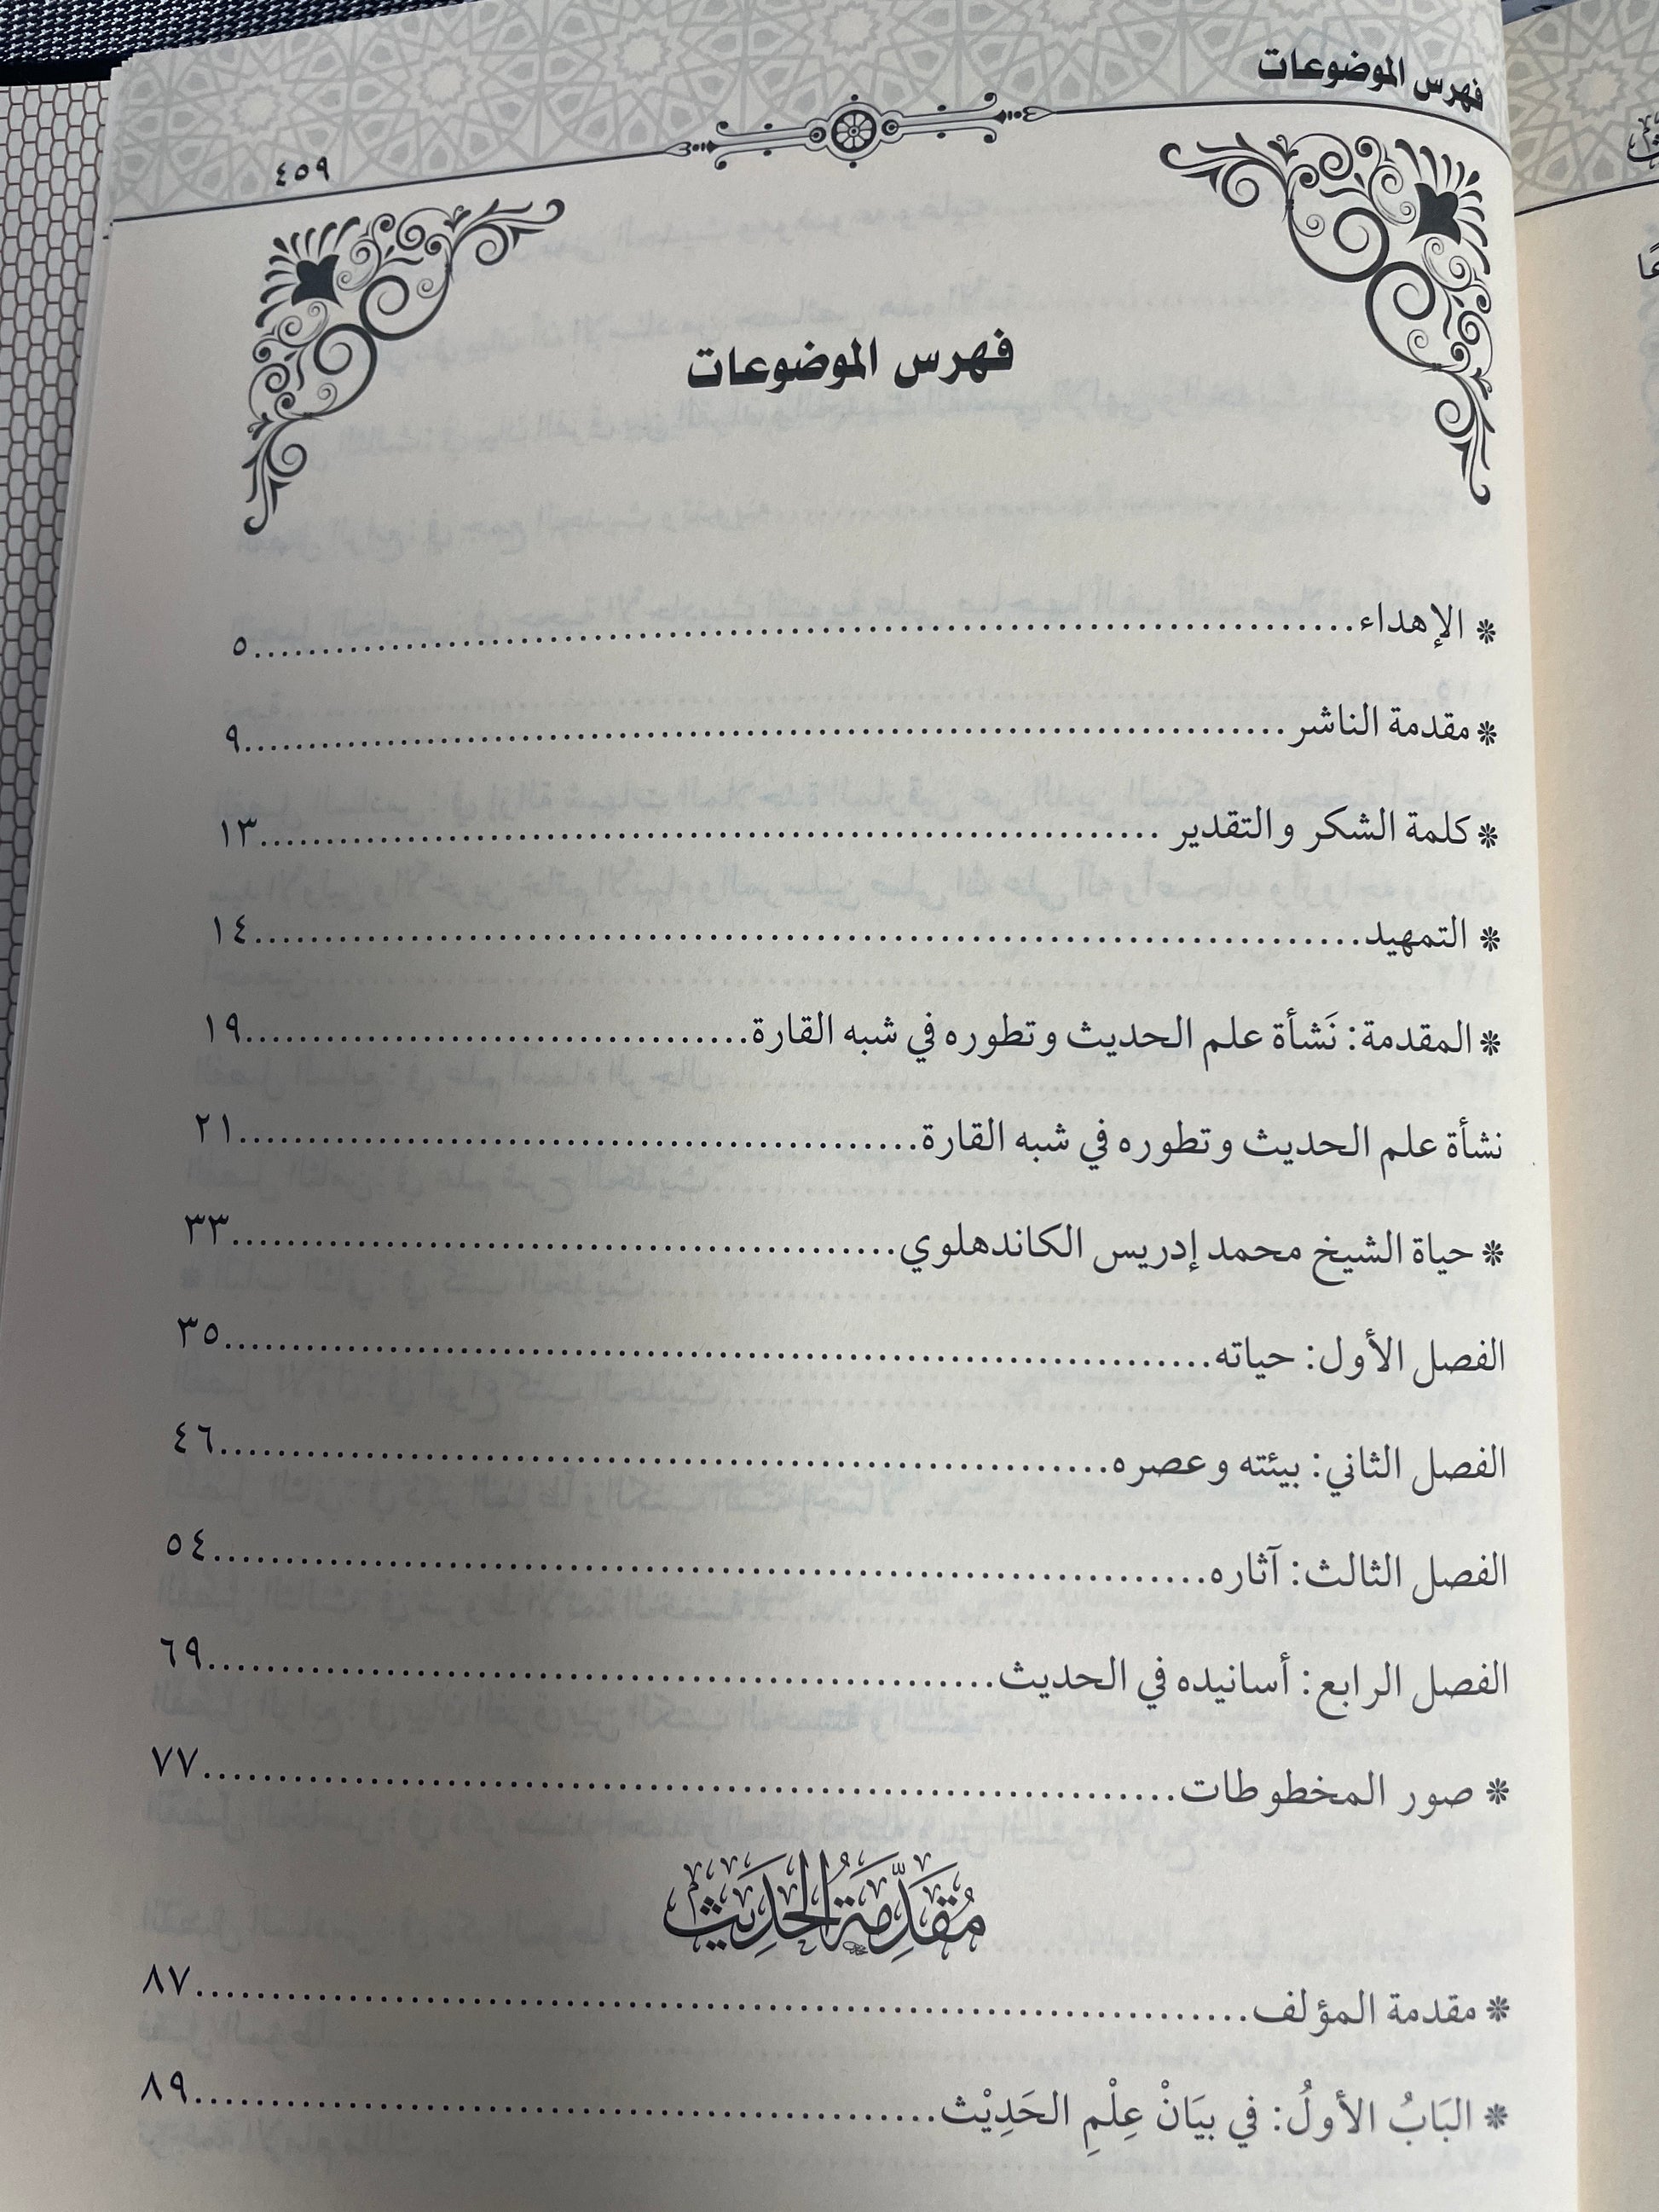 فهرس الموضوعات
٤٥٩
فهرس الموضوعات
❊ الإهداء..........٥
❊ مقدمة الناشر..........٩
❊ كلمة الشكر والتقدير..........١٣
❊ التمهيد..........١٤
❊ المقدمة: نَشأة علم الحديث وتطوره في شبه القارة..........١٩
نشأة علم الحديث وتطوره في شبه القارة..........٢١
❊ حياة الشيخ محمد إدريس الكاندهلوي..........٣٣
الفصل الأول: حياته..........٣٥
الفصل الثاني: بيئته وعصره..........٤٦
الفصل الثالث: آثاره..........٥٤
الفصل الرابع: أسانيده في الحديث..........٦٩
❊ صور المخطوطات..........٧٧
مُقَدِّمَةُ الحَدِيث
❊ مقدمة المؤلف..........٨٧
❊ البَابُ الأولُ: في بيَانْ عِلْمِ الحَدِيْث..........٨٩